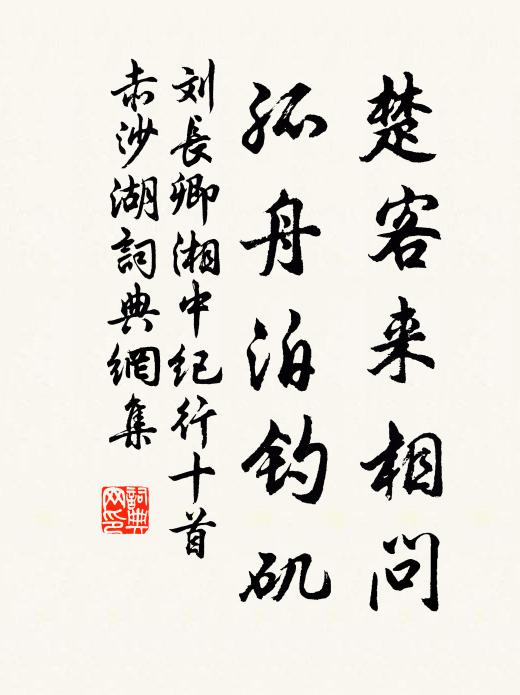 楚客来相问
孤舟泊钓矶
刘長卿湘中纪行十首
赤沙湖詞典網集
詞典网印